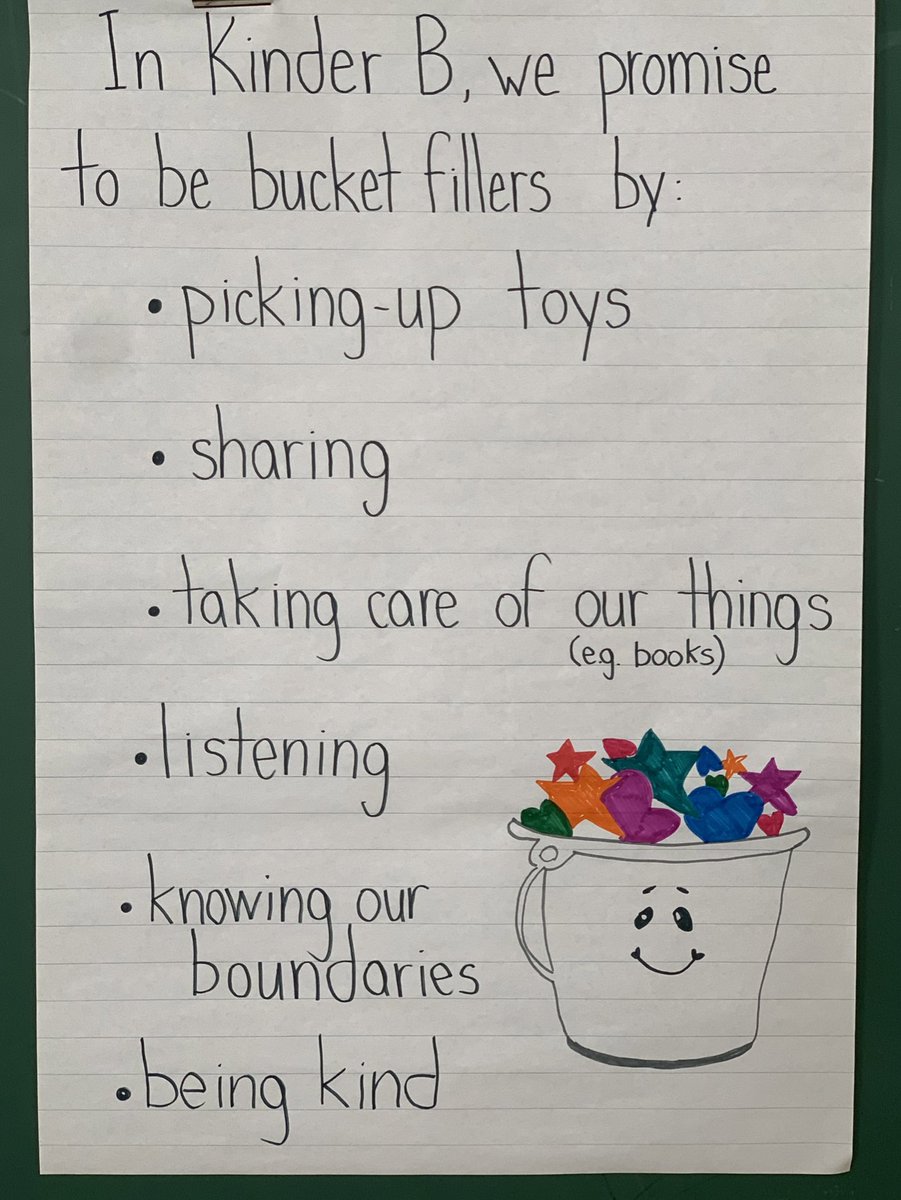 In Kinder B, we promise
to be bucket fillers by:
• picking-up toys
• sharing
• taking care of our things
(e.g. books)
• listening
• knowing our
boundaries
• being kind